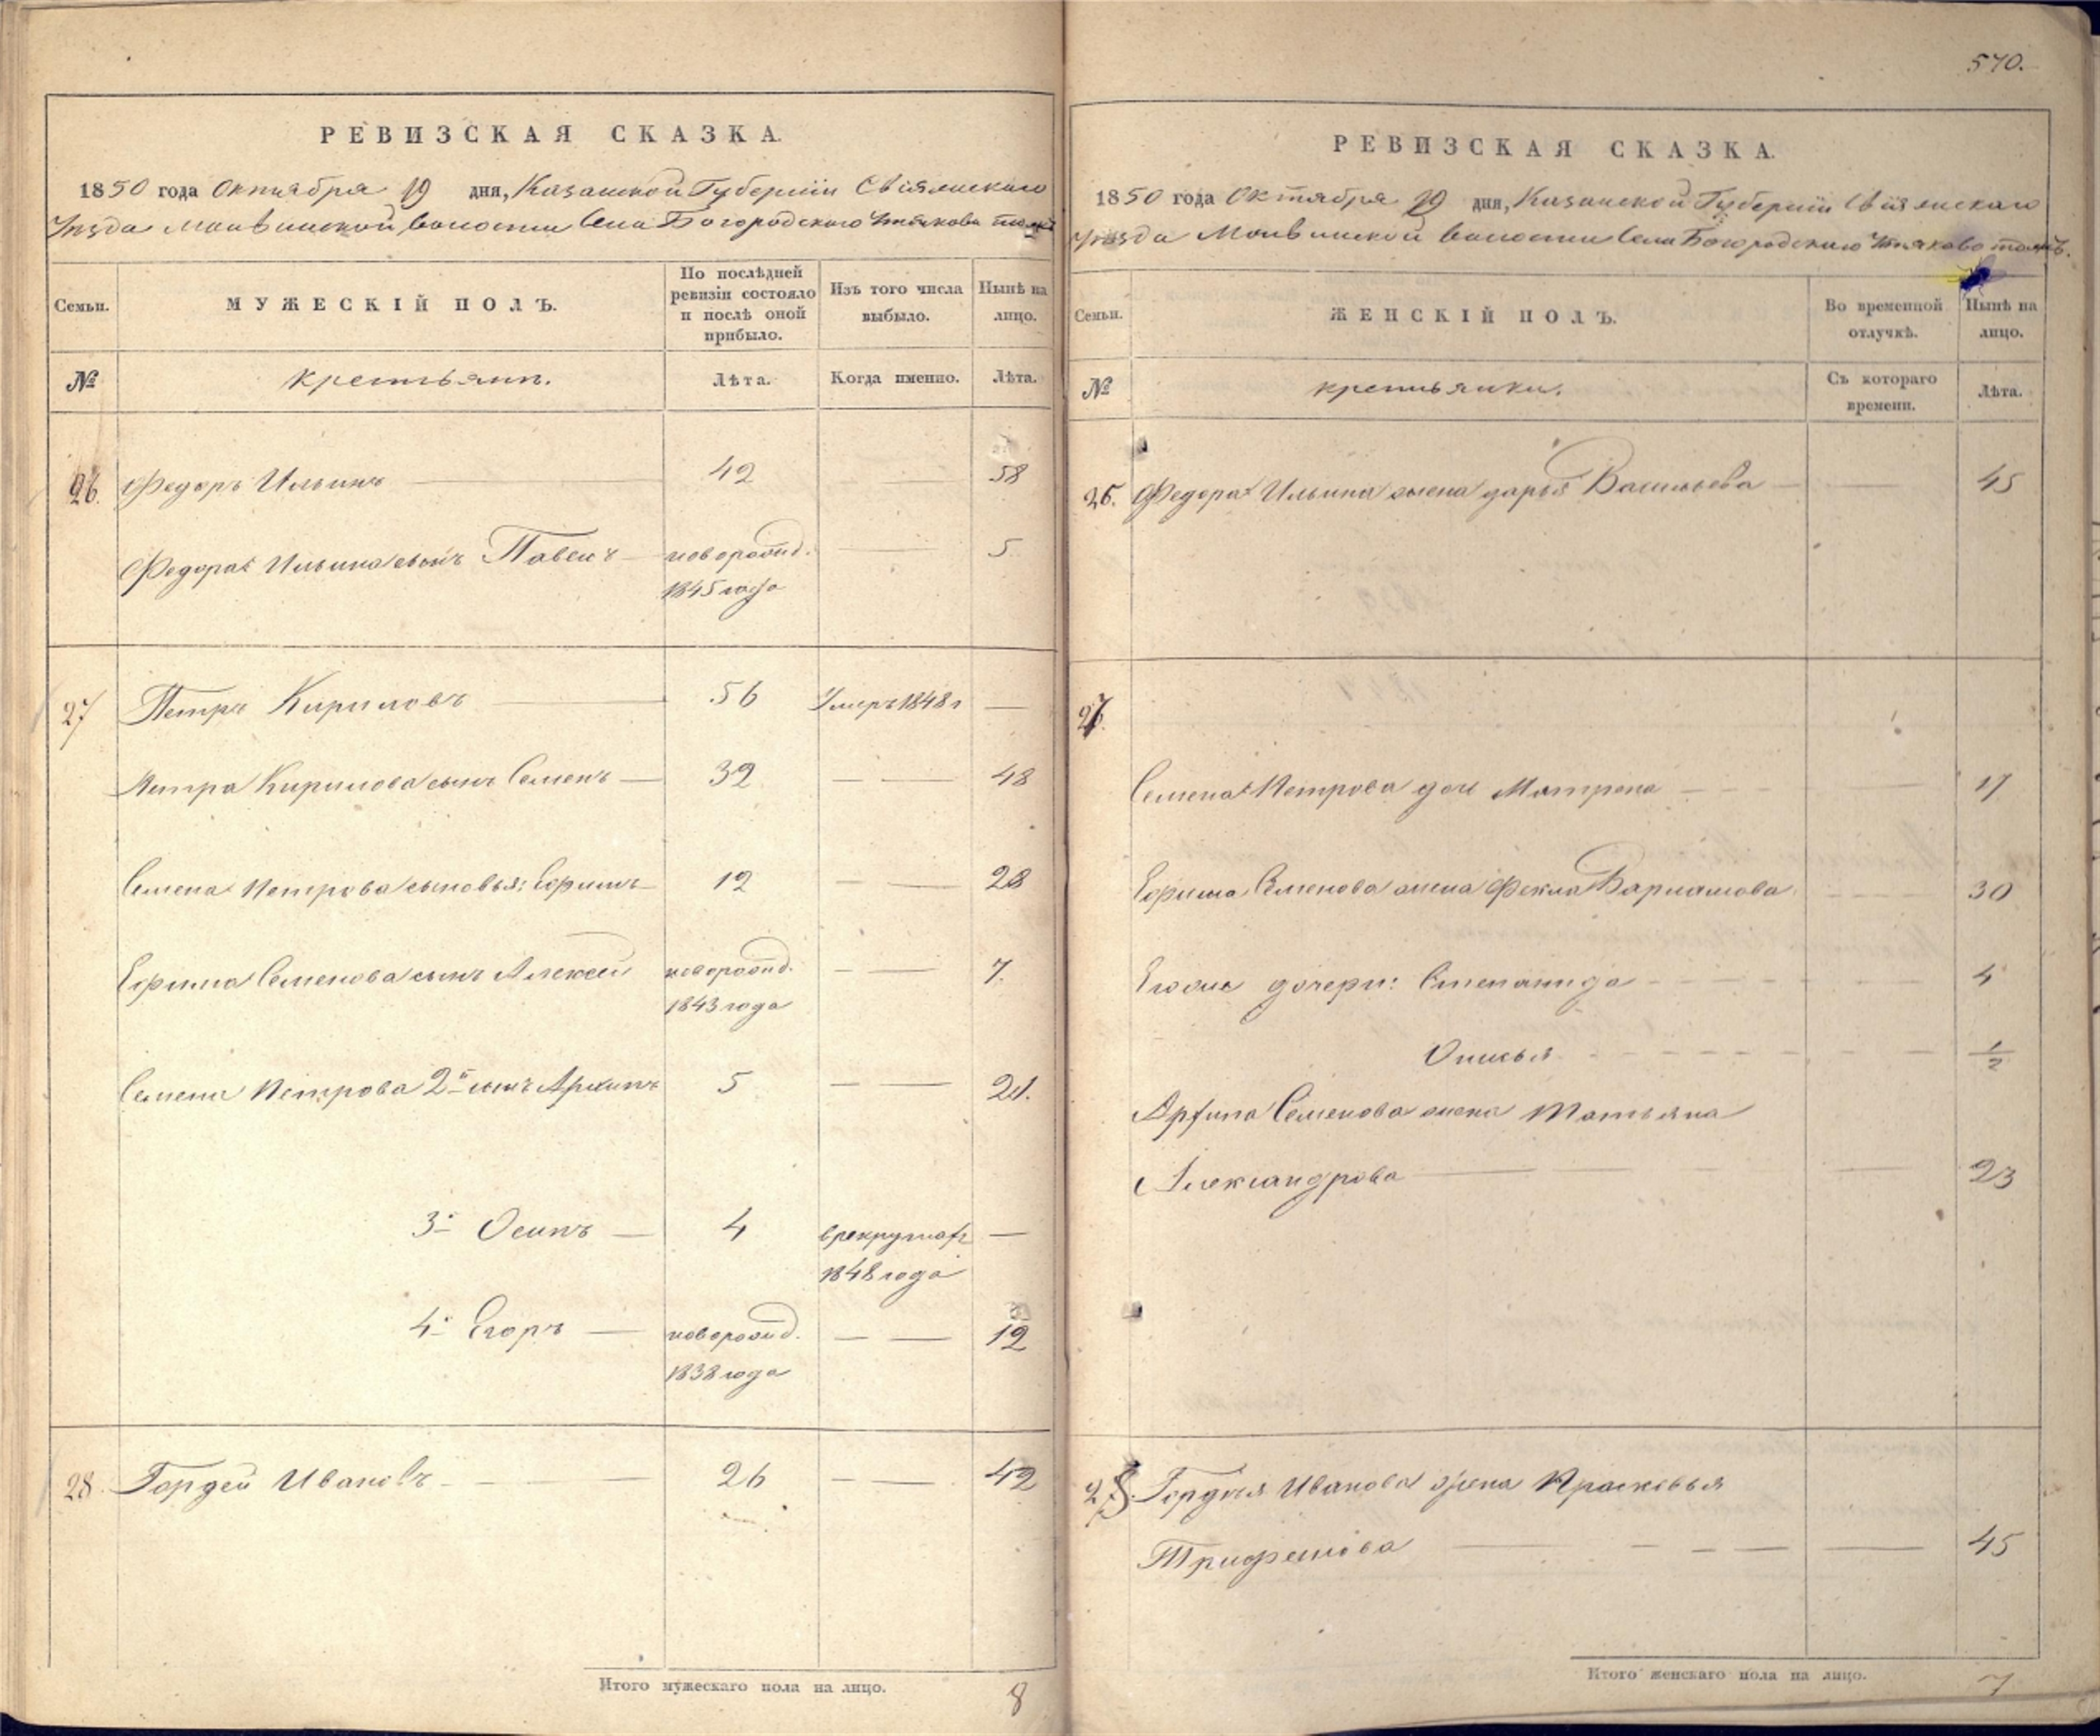 570.
РЕВИЗСКАЯ СКАЗКА.
1850 года Октября 19 дня, Казанской Губерніи Свіяжскаго
Уѣзда волости Села Богородскаго
Семьи.
МУЖЕСКІЙ ПОЛЪ.
По послѣдней ревизіи состояло и послѣ оной прибыло.
Изъ того числа выбыло.
Нынѣ на лицо.
№
крестьянъ.
Лѣта.
Когда именно.
Лѣта.
26. Федоръ Ильинъ 42 58
Федора Ильина сынъ Павелъ новорожд. 5
1845 года
27 Петръ Кириловъ 56 Умеръ 1848 г —
Петра Кирилова сынъ Семенъ 32 48
Семена Петрова сыновья: Ефимъ 12 28
Ефима Семенова сынъ Алексей новорожд. 7.
1843 года
Семена Петрова 2й сынъ Архипъ 5 21.
3й Осипъ 4 врекрутах —
1848 года
4й Егоръ новорожд. 12
1838 года
28 Гордей Ивановъ 26 42
Итого мужескаго пола на лицо. 8
РЕВИЗСКАЯ СКАЗКА.
1850 года Октября 19 дня, Казанской Губерніи Свіяжскаго
Уѣзда волости Села Богородскаго
Семьи.
ЖЕНСКІЙ ПОЛЪ.
Во временной отлучкѣ.
Нынѣ на лицо.
№
крестьянки.
Съ котораго времени.
Лѣта.
26. Федора Ильина жена дарья Васильева 45
27.
Семена Петрова доч Матрена 17
Ефима Семенова жена Фекла Варламова 30
Егоже дочери: Степанида 4
1/2
Архипа Семенова жена Татьяна
Александрова 23
28. Гордея Иванова жена Прасковья
45
Итого женскаго пола на лицо. 7